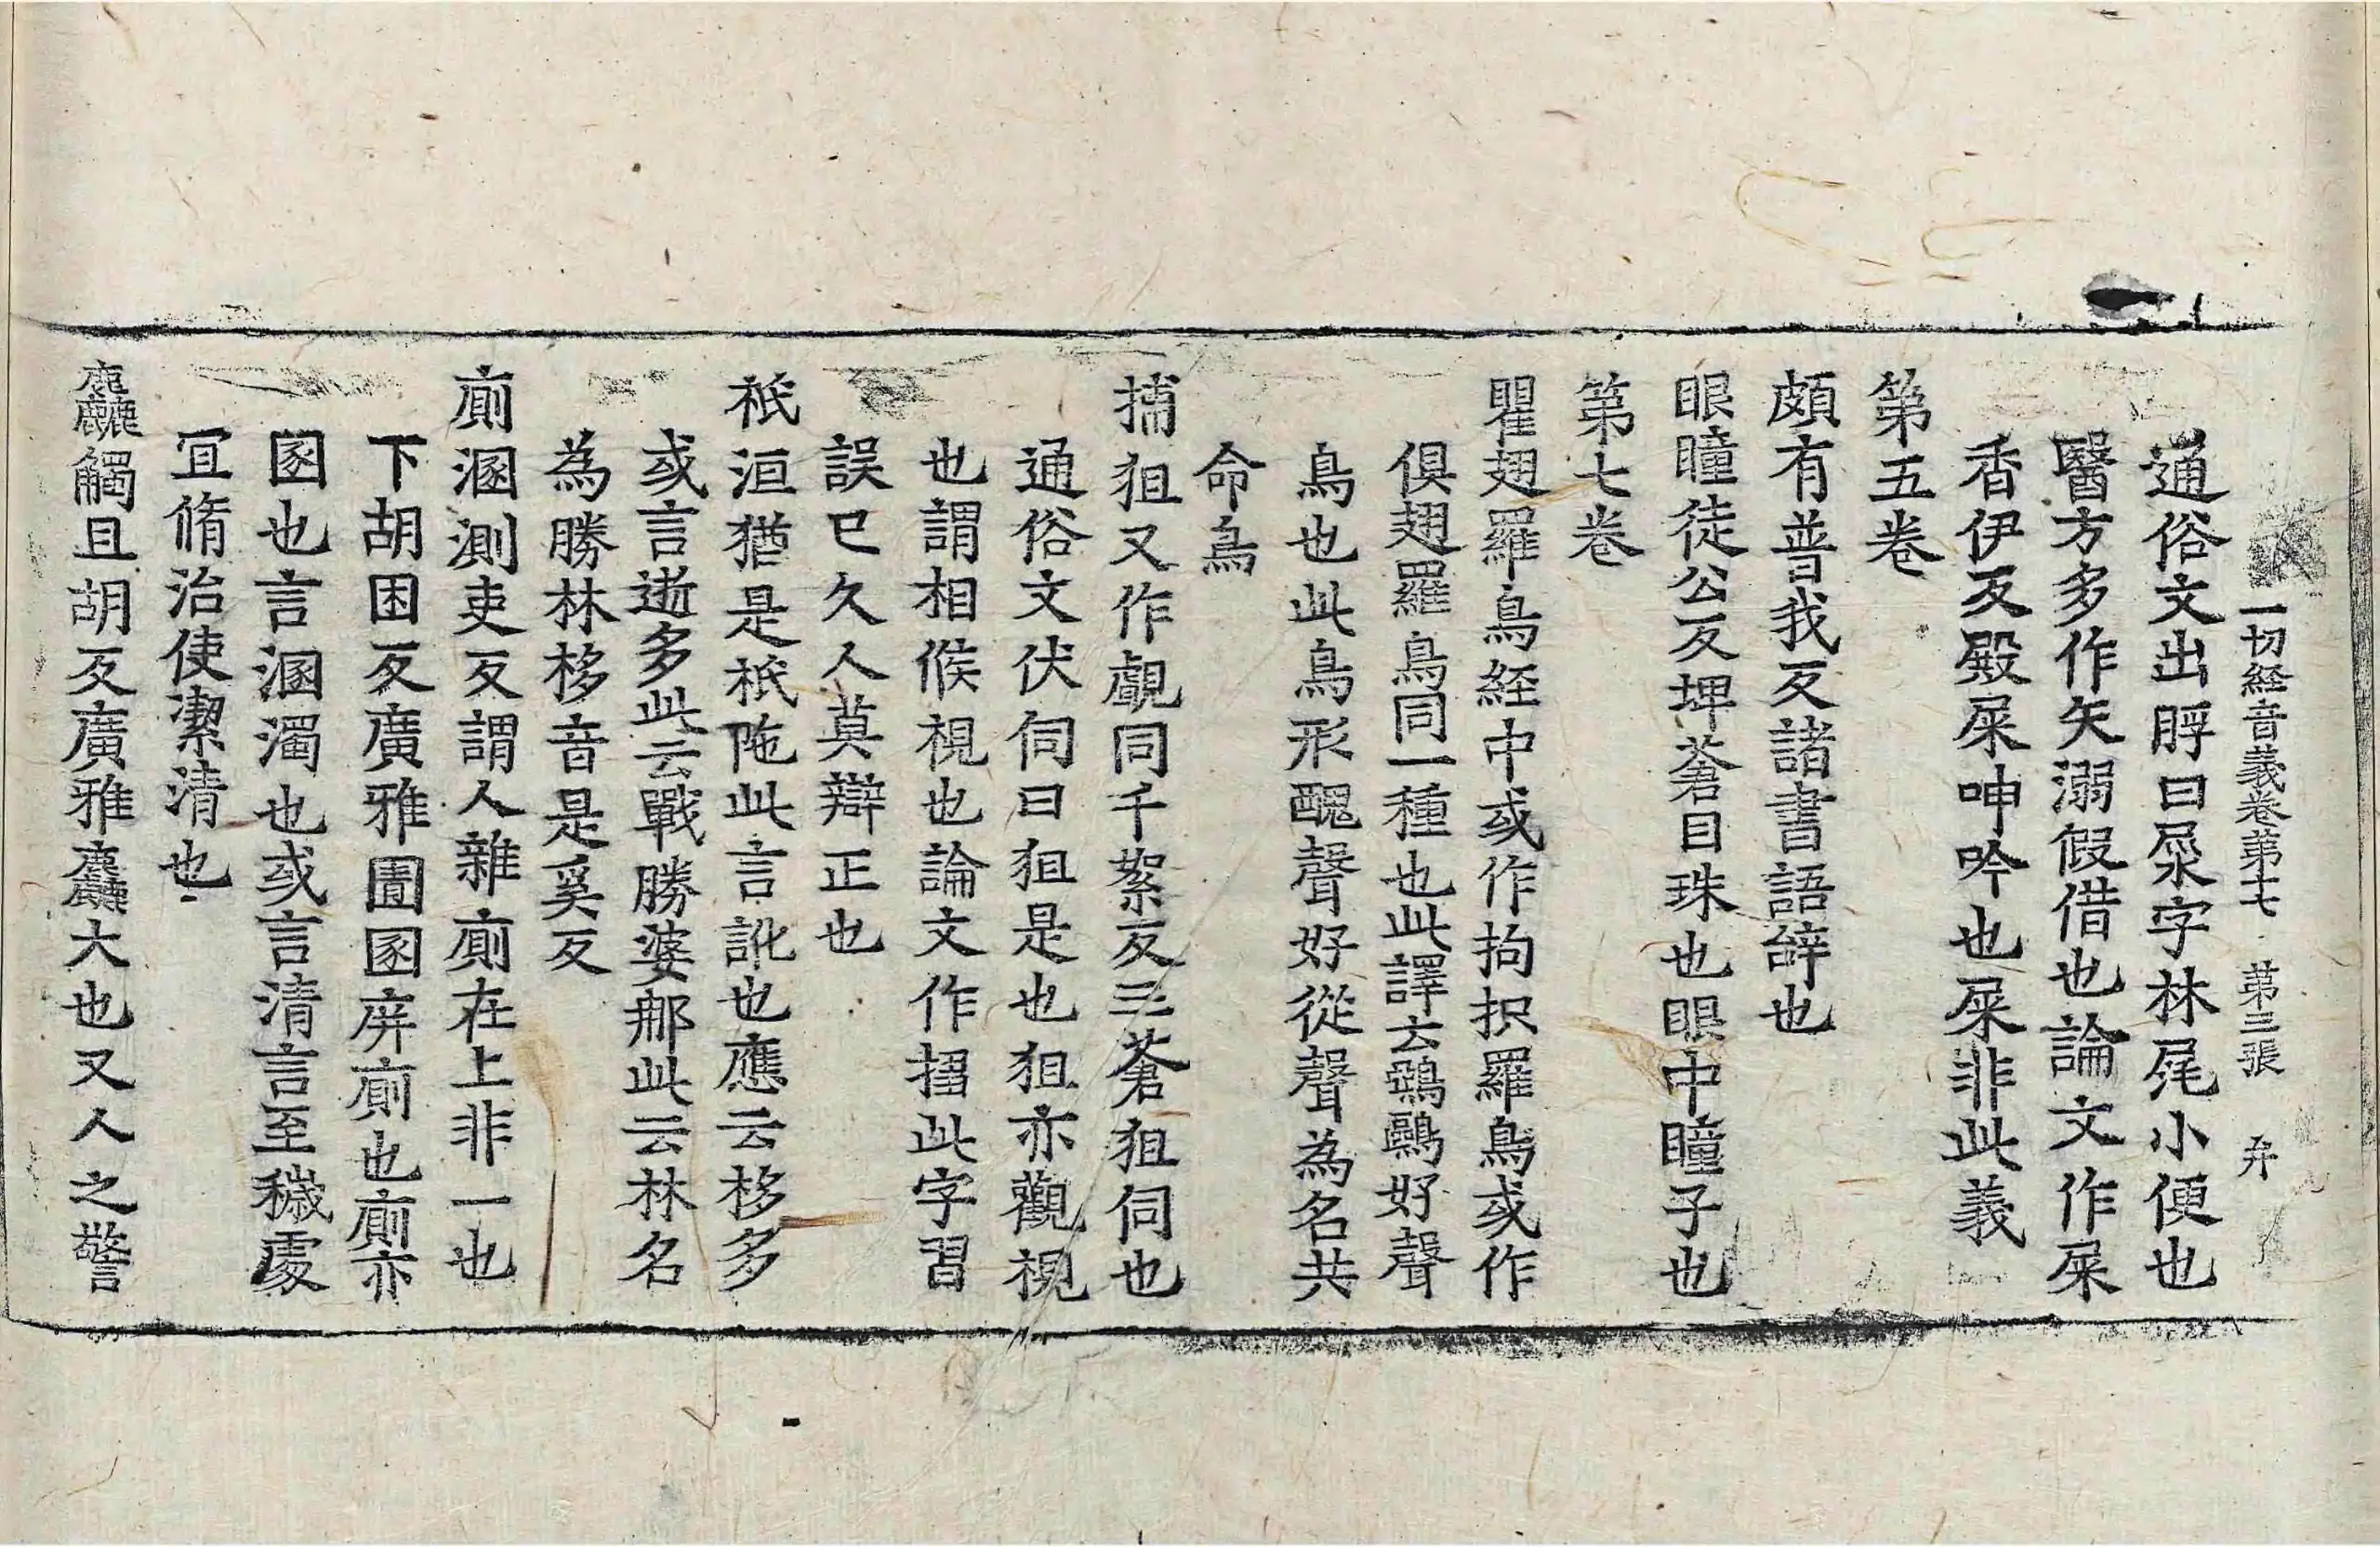 一切経音義卷第七 第三張 弁
通俗文出脬曰㞙字林尾小便也
醫方多作矢溺假借也論文作屎
香伊反殿屎呻吟也屎非此義
第五卷
頗有普我反諸書語辞也
眼瞳徒公反埤蒼目珠也眼中瞳子也
第七卷
瞿翅羅鳥経中或作拘抧羅鳥或作
俱翅羅鳥同一種也此譯云鵶鷊好聲
鳥也此鳥形醜聲好從聲為名共
命鳥
捕狙又作覰同千絮反三蒼狙伺也
通俗文伏伺曰狙是也狙亦觀視
也謂相候視也論文作㨨此字習
誤已久人莫辯正也
祇洹猶是祇陁此言訛也應云移多
或言逝多此云戰勝婆那此云林名
為勝林移音是奚反
廁溷測吏反謂人雜廁在上非一也
下胡困反廣雅圊圂庰廁也廁亦
圂也言溷濁也或言清言至穢處
冝脩治使潔清也
麤觸且胡反廣雅麤大也又人之警